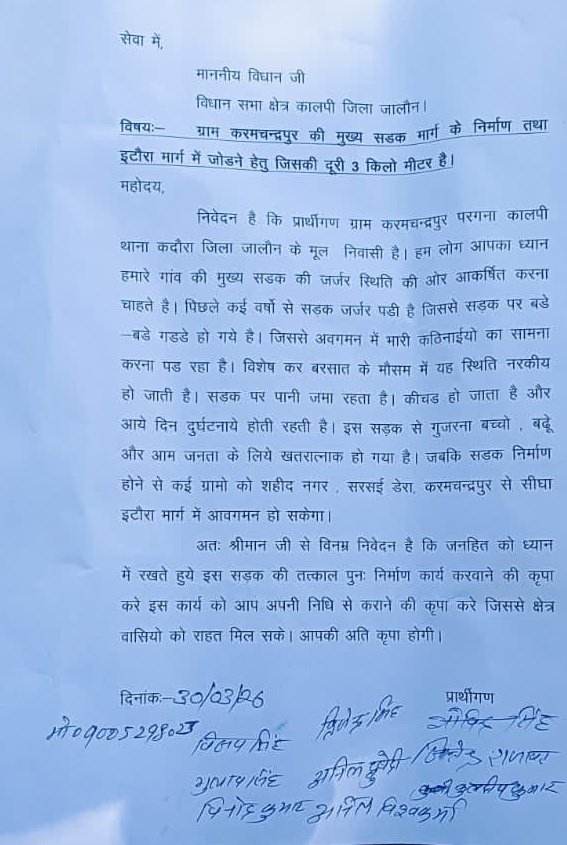 सेवा में,
माननीय विधान जी
विधान सभा क्षेत्र कालपी जिला जालौन।
विषयः– ग्राम करमचन्द्रपुर की मुख्य सडक मार्ग के निर्माण तथा
इटौरा मार्ग में जोडने हेतु जिसकी दूरी 3 किलो मीटर है।
महोदय,
निवेदन है कि प्रार्थीगण ग्राम करमचन्द्रपुर परगना कालपी
थाना कदौरा जिला जालौन के मूल निवासी है। हम लोग आपका ध्यान
हमारे गांव की मुख्य सडक की जर्जर स्थिति की ओर आकर्षित करना
चाहते है। पिछले कई वर्षो से सड़क जर्जर पडी है जिससे सड़क पर बडे
–बडे गडडे हो गये है। जिससे अवगमन में भारी कठिनाईयो का सामना
करना पड रहा है। विशेष कर बरसात के मौसम में यह स्थिति नरकीय
हो जाती है। सडक पर पानी जमा रहता है। कीचड हो जाता है और
आये दिन दुर्घटनाये होती रहती है। इस सडक से गुजरना बच्चो , बढ़े
और आम जनता के लिये खतरात्नाक हो गया है। जबकि सडक निर्माण
होने से कई ग्रामो को शहीद नगर , सरसई डेरा, करमचन्द्रपुर से सीघा
इटौरा मार्ग में आवगमन हो सकेगा।
अतः श्रीमान जी से विनम्र निवेदन है कि जनहित को ध्यान
में रखते हुये इस सडक की तत्काल पुनः निर्माण कार्य करवाने की कृपा
करे इस कार्य को आप अपनी निधि से कराने की कृपा करे जिससे क्षेत्र
वासियो को राहत मिल सके। आपकी अति कृपा होगी।
दिनांकः–30/03/26 प्रार्थीगण
मो०9005298023 विजय सिंह सिंह गोविन्द सिंह
गुलाब सिंह अनिल
विनोद कुमार अनिल विश्वकर्मा कुमार